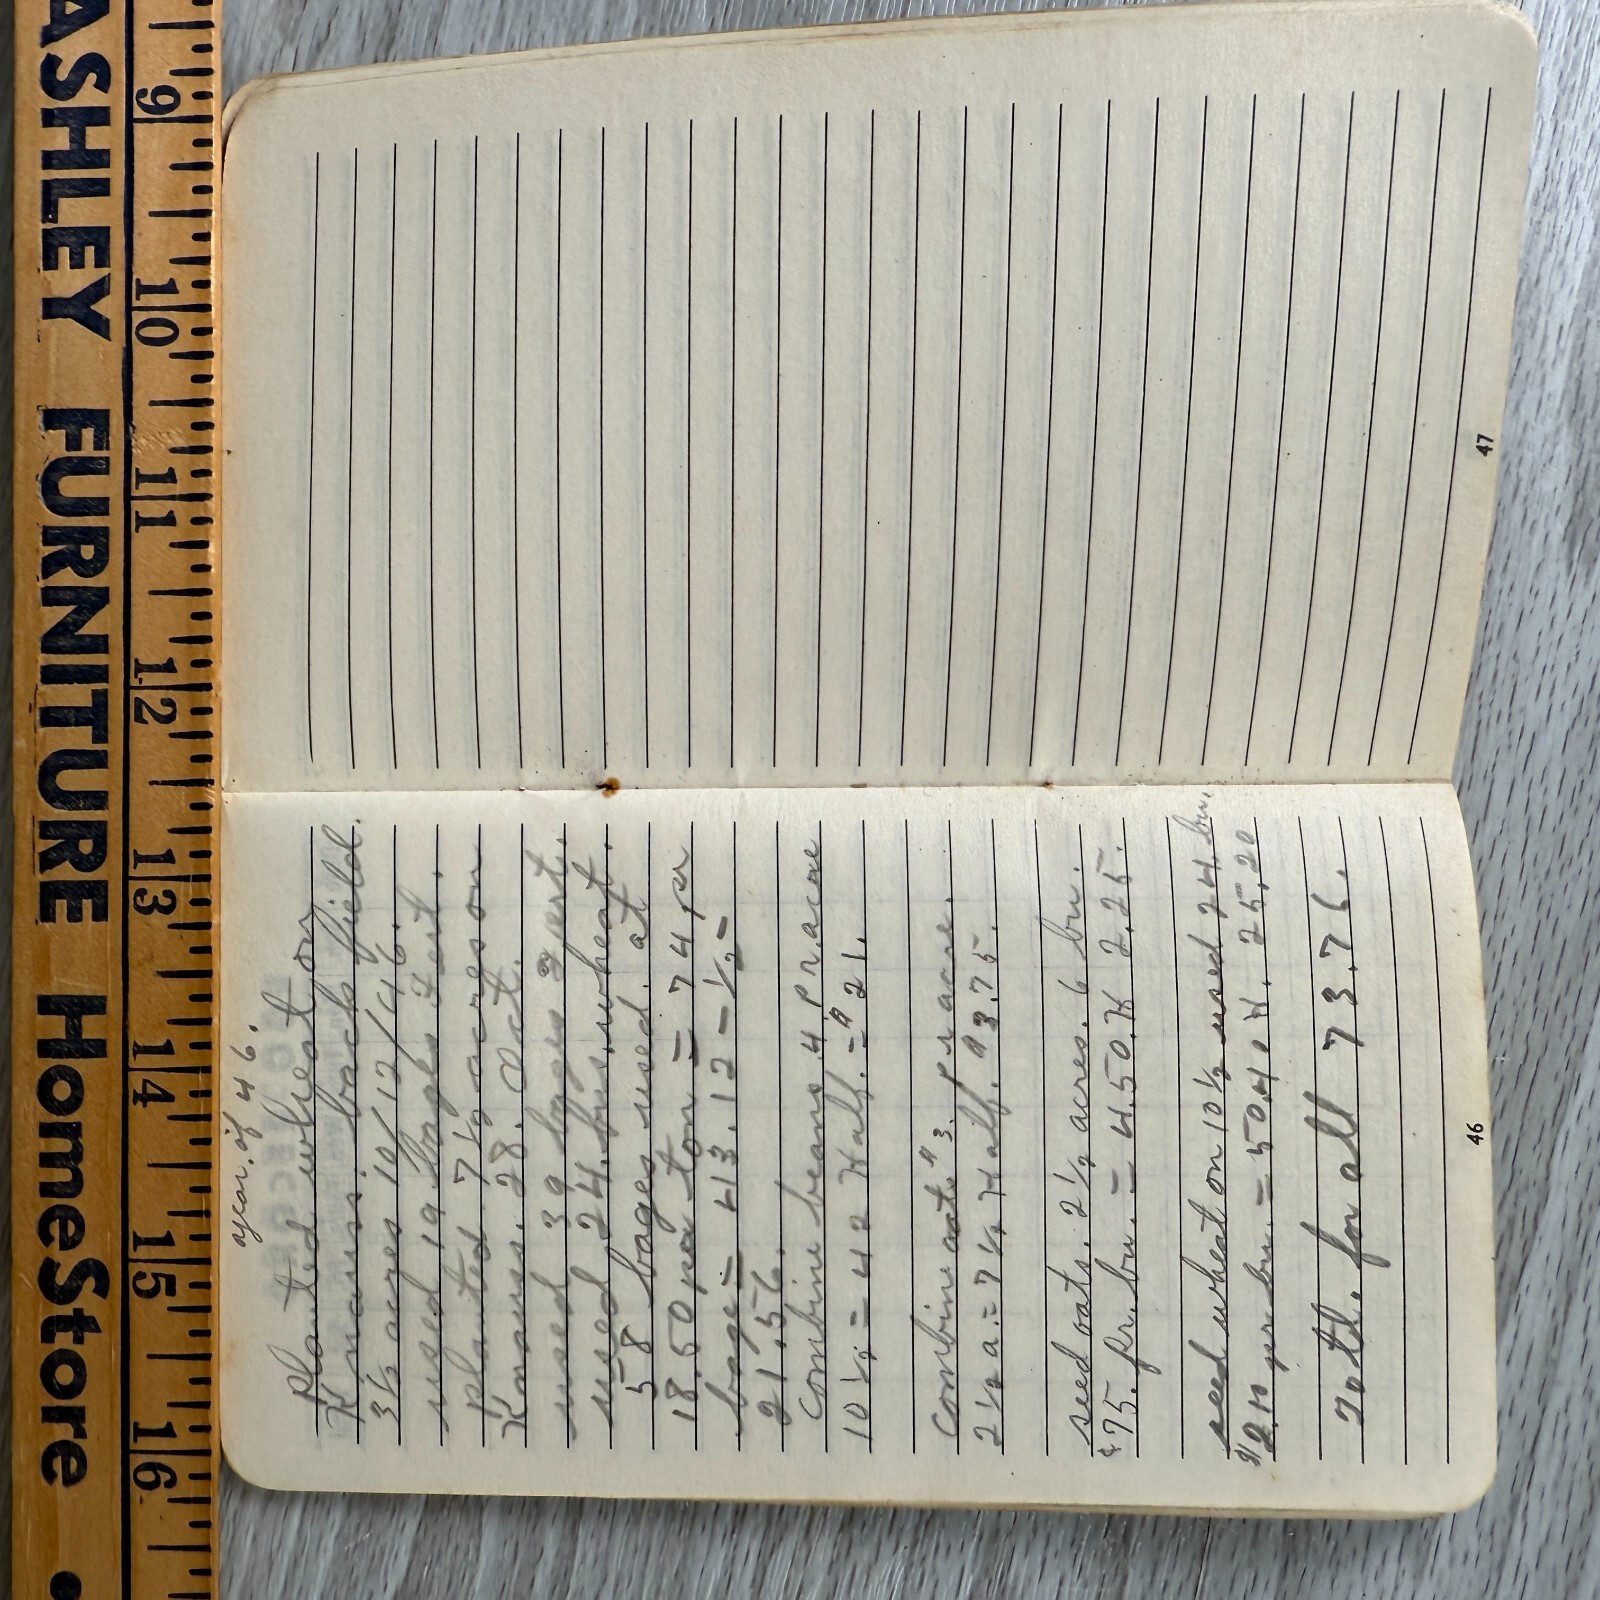 ASHLEY FURNITURE HomeStore •
9 10 11 12 13 14 15 16
year. of 46.
Planted wheat on
Knauss. back field.
3 1/2 acres 10/12/46.
used 19 bags Fert.
planted 7 1/2 acres on
Knauss. 28. Oct.
used 39 bages Fert.
used 24. bus. wheat.
58 bages used. at
18.50 per ton = 74 pr
bage = 43.12 - 1/2 -
21.56.
Combine beans 4 pr. acre
10 1/2 = 42 Half. = $21.
Combine oats $3. pr acre.
2 1/2 a = 7 1/2 Half. $3.75.
seed oats. 2 1/2 acres. 6 bu.
$.75. pr. bu. = 4.50. H 2.25.
seed wheat on 10 1/2 used 24. bu.
$2.10 per bu. = 50.40 H. 25.20
Totl. for all 73.76.
46
47